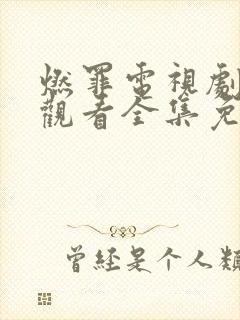 燃罪電視劇
觀看全集免
曾經是个人類